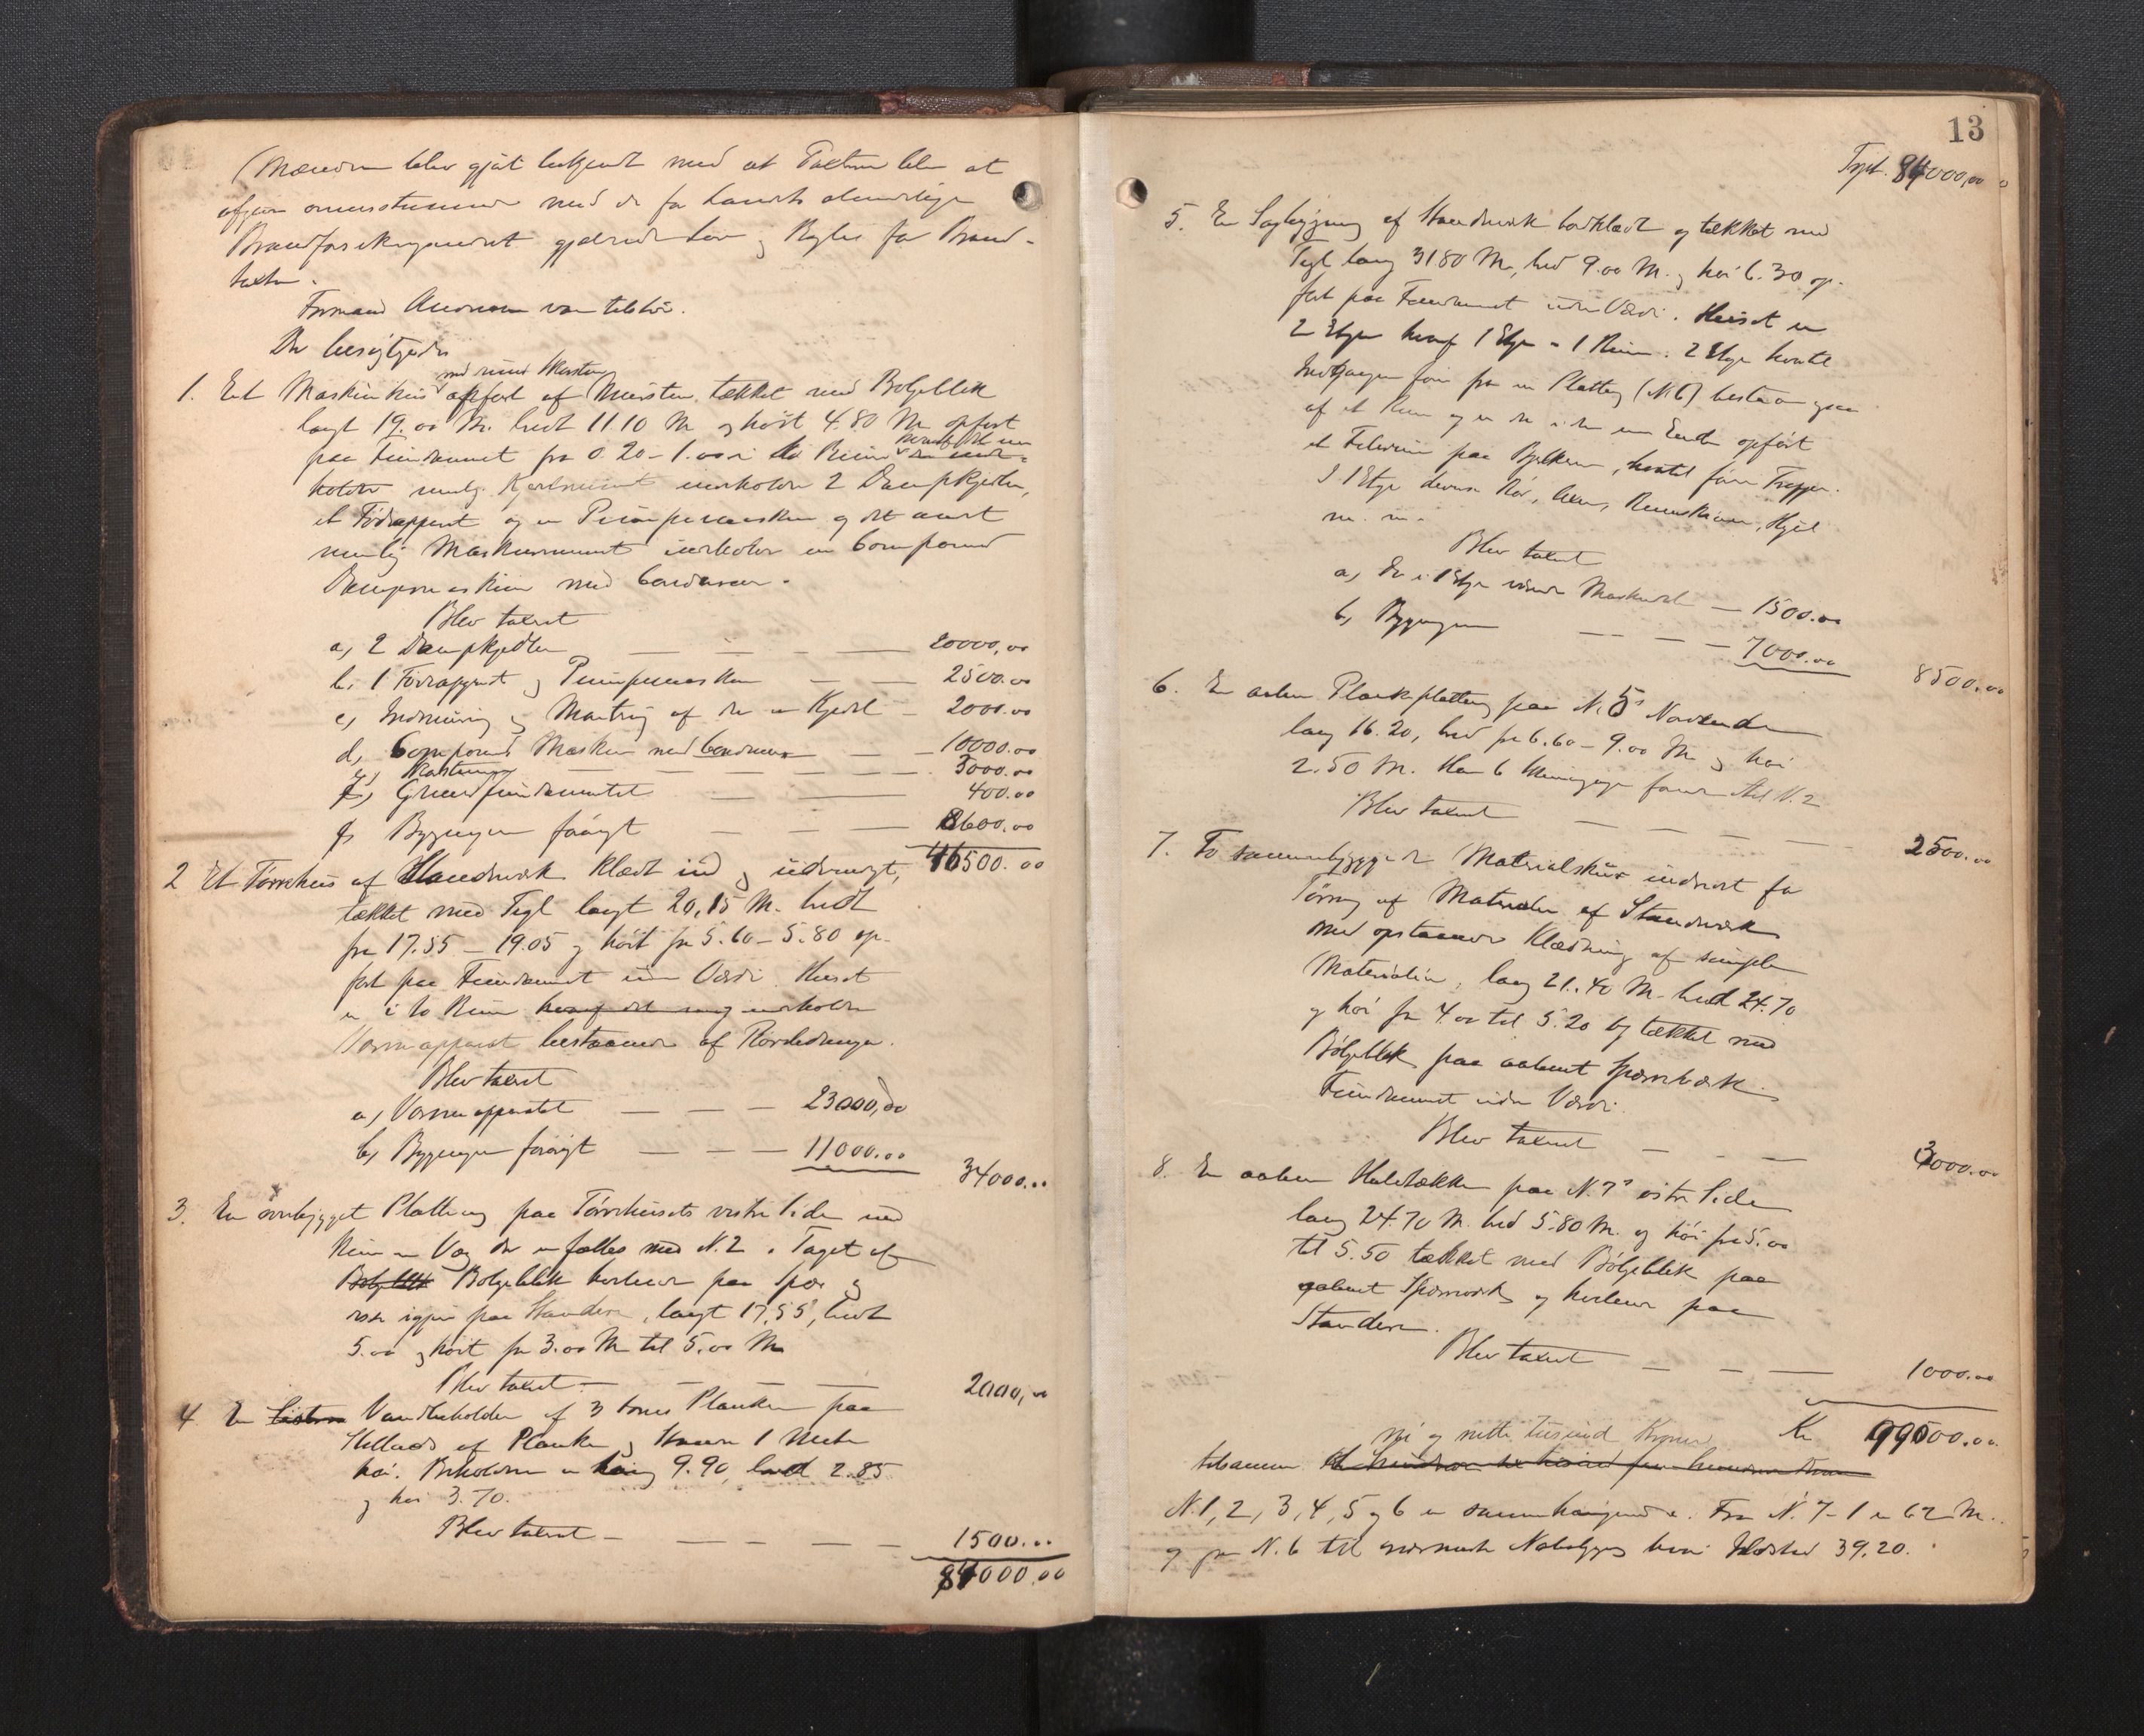 Mændene blev gjort bekjendt med at Taxten blev at
afgive overensstemmende med de for Landets almindelige
Brandforsikringsindret. gjældende Love og Regler for Brand-
taxter.
Formand var tilstede.
Der besigtigedes
med muret Skorsten
1. Et Maskinhus opført af Mursten tækket med Bølgeblik
langt 19.00 M. bredt 11.10 M og høit 4.80 M opført
paa Fundament fra 0.20 - 1.00 i to Rum hvoraf det ene
holder nemlig Kjedelrummet indeholder 2 Dampkjedler,
et Fødeapparat og en Pumpemaskine og det andet
nemlig Maskinrummet indeholder en Compound
Dampmaskine med Condensator.
Blev taxeret
a, 2 Dampkjedler — — — 20000,00
b, 1 Fødeapparat og Pumpemaskine — — 2500.00
c, Indmuring og Montering af de to Kjedel — 2000.00
d, Compound Maskine med Condensator — 10000.00
e, Skorstenen — — — 3000.00
f, Grundfundamentet — — 400.00
g, Bygningen forøvrigt — — 8600.00
46500.00
2 Et Tørrehus af Standverk klædt ind og udvendigt,
tækket med Tegl langt 20,15 M. bredt
fra 17.55 — 19.05 og høit fra 5.60 — 5.80 op-
ført paa Fundament uden Værdi. Huset
er i to Rum hvoraf det ene indeholder
Varmeapparat bestaaende af Rørledninger.
Blev taxeret
a, Varmeapparatet — — — 23000,00
b, Bygningen forøvrigt — — — 11000.00
34000...
3. En overbygget Platting paa Tørrehusets vestre Side med
kun en Væg der er fælles med N. 2. Taget af
Bølgeblik Bølgeblik hviler paa Spær og
disse igjen paa Standere, langt 17,55, bredt
5.00 og høit fra 3.00 M til 5.00 M
Blev taxeret — — — 2000,00
4. En Cistern Vandbeholder af 3 toms Planker paa
Stillads af Planker og Staver 1 Meter
høi. Beholderen er lang 9.90, bred 2.85
og høi 3.70.
Blev taxeret — — — 1500...
84000.00
13
Trpt. 84000,00
5. En Sagbygning af Standverk bordklædt og tækket med
Tegl lang 31.80 M, bred 9.00 M. og høi 6.30 op-
ført paa Fundament uden Værdi. Huset er
2 Etager hvoraf 1 Etage = 1 Rum. 2 Etage hvortil
Indgangen fører fra en Platting (N. 6) bestaar ogsaa
af et Rum og er der i den ene Ende opført
et Filerum paa Bjelker, hvortil fører Trapper.
I 1 Etage diverse Rør, Remskiver, Hjul
m. m.
Blev taxeret
a, De i 1 Etage værende Maskindele — 1500.00
b, Bygningen — — — 7000.00
8500.00
6. En aaben Plankeplatting paa N. 5s Nordende
lang 16.20, bred fra 6.60 — 9.00 M og høi
2.50 M. Har fører til N. 2
Blev taxeret — — — 2500.00
7. To sammenbyggede Materialskur indrettet for
Tørring af Materialer af Standverk
med opstaaende Klædning af simple
Materialier, lang 21.40 M. bred 24.70
og høi fra 4.00 til 5.20 og tækket med
Bølgeblik paa aabent Sperreværk.
Fundament uden Værdi.
Blev taxeret — — — 3000.00
8. En aaben Halvtække paa N. 7s østre Side
lang 24.70 M. bred 5.80 M. og høi fra 5.00
til 5.50 tækket med Bølgeblik paa
aabent Sperreverk og hvilende paa
Standere.
Blev taxeret — — — 1000.00
Kr 99000.00
ni og nitti tusind Kroner
tilsammen
N. 1, 2, 3, 4, 5 og 6 er sammenhængende. Fra N. 7 - 1 er 62 M.
og fra N. 6 til nærmeste Nabobygges 39.20.